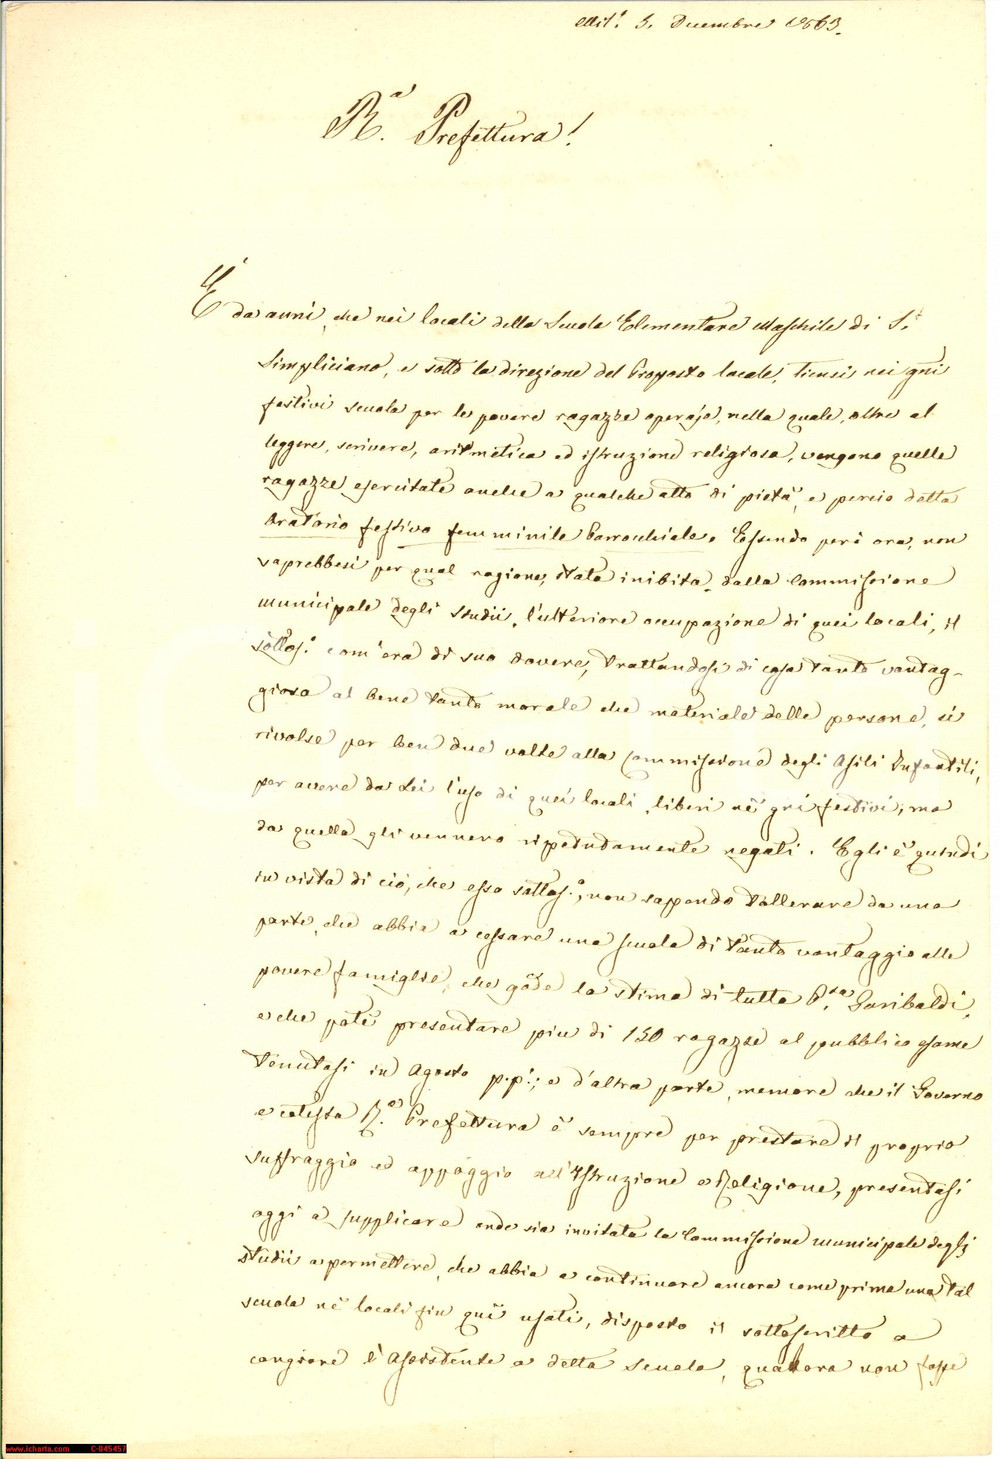 Mil.º 5. Dicembre 1863.
R.a Prefettura!
É da anni, che nei locali della Scuola Elementare Maschile di S.t
Simpliciano, e sotto la direzione del Proposto locale, tiensi nei gni
festivi scuola per le povere ragazze operaje, nella quale, oltre al
leggere, scrivere, aritmetica ed istruzione religiosa, vengono quelle
ragazze esercitate anche a qualche atto di pietà, e perciò detta
Oratorio festivo femminile Parrochiale. Essendo però ora, non
saprebbesi per qual ragione, stata inibita, dalla Commissione
municipale degli studii, l'ulteriore occupazione di quei locali, il
sottos.º com'era di suo dovere, trattandosi di cosa tanto vantag-
giosa al bene tanto morale che materiale delle persone, si
rivolse per ben due volte alla Commissione degli Asili Infantili,
per avere da Lei l'uso di quei locali, liberi nè gni festivi; ma
da quella gli vennero ripetutamente negati. Egli è quindi
in vista di ciò, che esso sottos.º, non sapendo tollerare da una
parte, che abbia a cessare una scuola di tanto vantaggio alle
povere famiglie, che gode la stima di tutta P.ta Garibaldi,
e che potè presentare più di 150 ragazze al pubblico esame
tenutasi in Agosto p.p.; e d'altra parte, memore che il Governo
e cotesta R.a Prefettura è sempre per prestare il proprio
suffraggio ed appoggio all'Istruzione e Religione, presentasi
oggi a supplicare onde sia invitata la Commissione municipale degli
studii a permettere, che abbia a continuare ancora come prima una tal
scuola nè locali fin quì usati, disposto il sottoscritto a
cangiare l'Assistente a detta Scuola, qualora non fosse
www.icharta.com C-045457